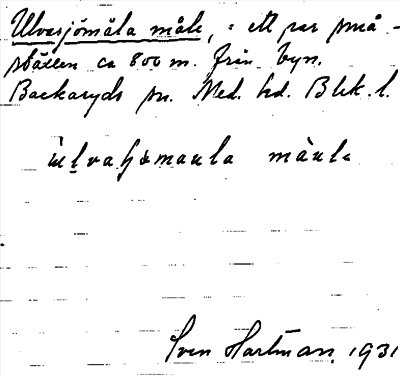 Ulvasjömåla måle, = ett par små-
ställen ca 800 m. från byn.
Backaryds sn. Med. hd. Blek. l.
ulvahömaula måula
Sven Hartman 1931